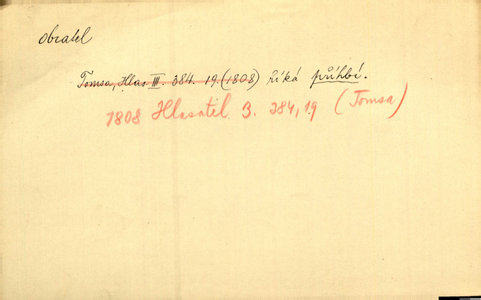 obratel
Tomsa, Hlas. III. 384. 19. (1808) říká příhbí.
1808 Hlasatel 3. 384,19 (Tomsa)